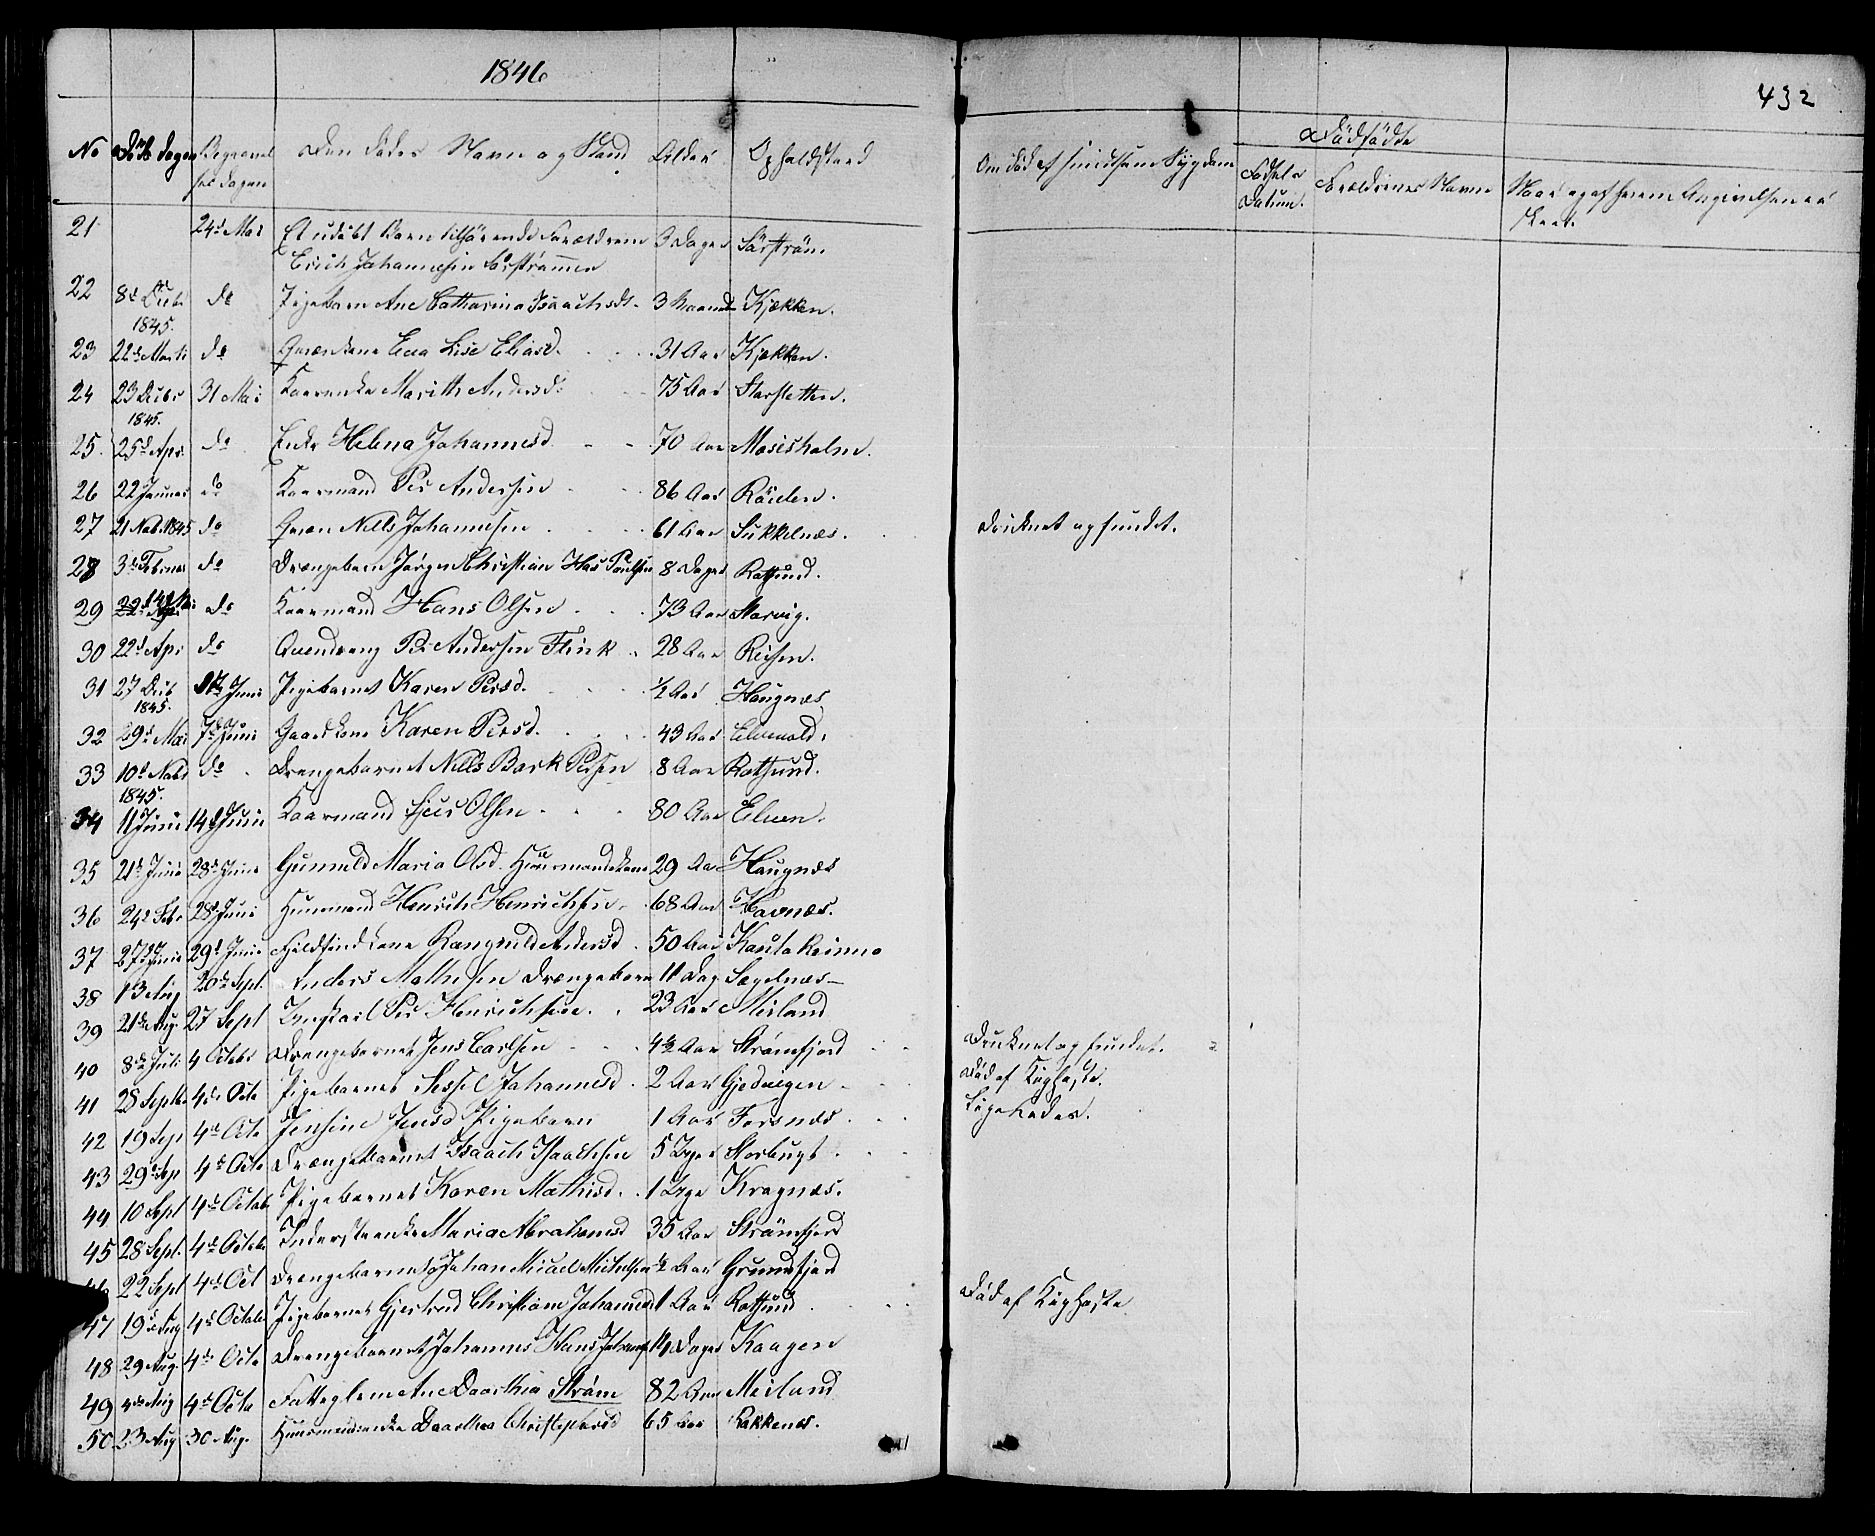 1846
432
No Døds dagen Begravelses dagen Den Dødes Navn og Stand Alder Opholdsted
Om død af smitsom Sygdom
Dødfødte
Fødsels Datum. Forældrenes Navne Naar og af hvem Angivelsen er skeet.
21 24d Mai Et udøbt Barn tilhørende Forældrene 3 Dage Sørstrøm.
Erich Johannesen Sørstrømmen
22 8d Decb 1845. do Pigebarn Ane Catharina Isaachsdt. 3 Maaned Kjækken.
23 22d Marti do Qvænkone Eva Lise Eliasd. 31 Aar Kjækken.
24 23 Decbr 1845. 31 Mai Kaarenke Marith Andersd. 75 Aar Storsletten.
25. 25d Apr. do Enke Helena Johannesd 70 Aar Mosisholm.
26 22 Januar do Kaarmand Per Andersen 86 Aar Röielen.
27 21 Nob. 1845 do Qvæn Nills Johannesen 61 Aar Sukkelnæs. Drucknet og fundet.
28 3d Februar do Drængebarn Jørgen Christian Has Poulsen 8 Dage Rotsund.
29 14d Mai do Kaarmand Hans Olsen 73 Aar Storvig.
30 22d Apr do Qvendreng Per Andersen Flink 28 Aar Reisen.
31 27 Decb 1845. 1te Juni Pigebarnet Karen Persd. ½ Aar Haugnæs
32 29d Mai 7de Juni Gaardkone Karen Persd. 43 Aar Elvevold.
33 10d Nobr 1845. do Drengebarnet Nills Bark Persen 8 Aar Rotsund.
34 11 Juni 14d Juni Kaarmand Sjur Olsen 80 Aar Elven.
35 21d Juni 28de Juni Gunnild Maria Olsd. Huusmandskone 29 Aar Haugnæs
36 24d Febr 28d Juni Huusmand Henrich Henrichsen 68 Aar Havnæs.
37 27d Juni 29d Juni Fieldfindkone Rangnild Andersd 50 Aar Kautokeinno
38 13 Aug 20de Sept. Anders Mathisen Drængebarn 11 Dag Segelnæs
39 21de Aug. 27 Sept Ungkarl Per Henrichsen. 23 Aar Meiland
40 8de Juli 4 Octobr Drengebarnet Jens Carlsen 4½ Aar Strømfjord Drucknet og fundet.
41 28 Septbr 4de Octo Pigebarnet Sessel Johannesd. 2 Aar Gjødvigen Død af Kighoste.
42 19 Sep 4de Octo Jensine Jensd Pigebarn 1 Aar Forsnæs Ligeledes.
43 29d Sep 4de Octo Drængebarnet Isaach Isaachsen 5 Uger Storbugt
44 10 Sept 4de Octob Pigebarnet Karen Mathisd. 1 Uge Kragnæs.
45 28 Sept. 4de Octob Inderstenke Maria Abrahamsd 35 Aar Strømfjord
22 Sept 4de Oct Drengebarnet Johan Micael Michelsen ½ Aar Grundfjord
47 19de Aug 4de Octob Pigebarnet Gjertrud Christiane Johannesd 1 Aar Rotsund Død af Kighoste
48 29 Aug. 4de Octo Drengebarnet Johannes Hans Johans 14 Dage Kaagen
49 4de Aug 4de Octo Fattiglem Ane Daarthea Strøm 82 Aar Meiland
50 23 Aug 30 Aug. Huusmandsenke Daarthea Christophersd 65 Aar Rakkenæs.